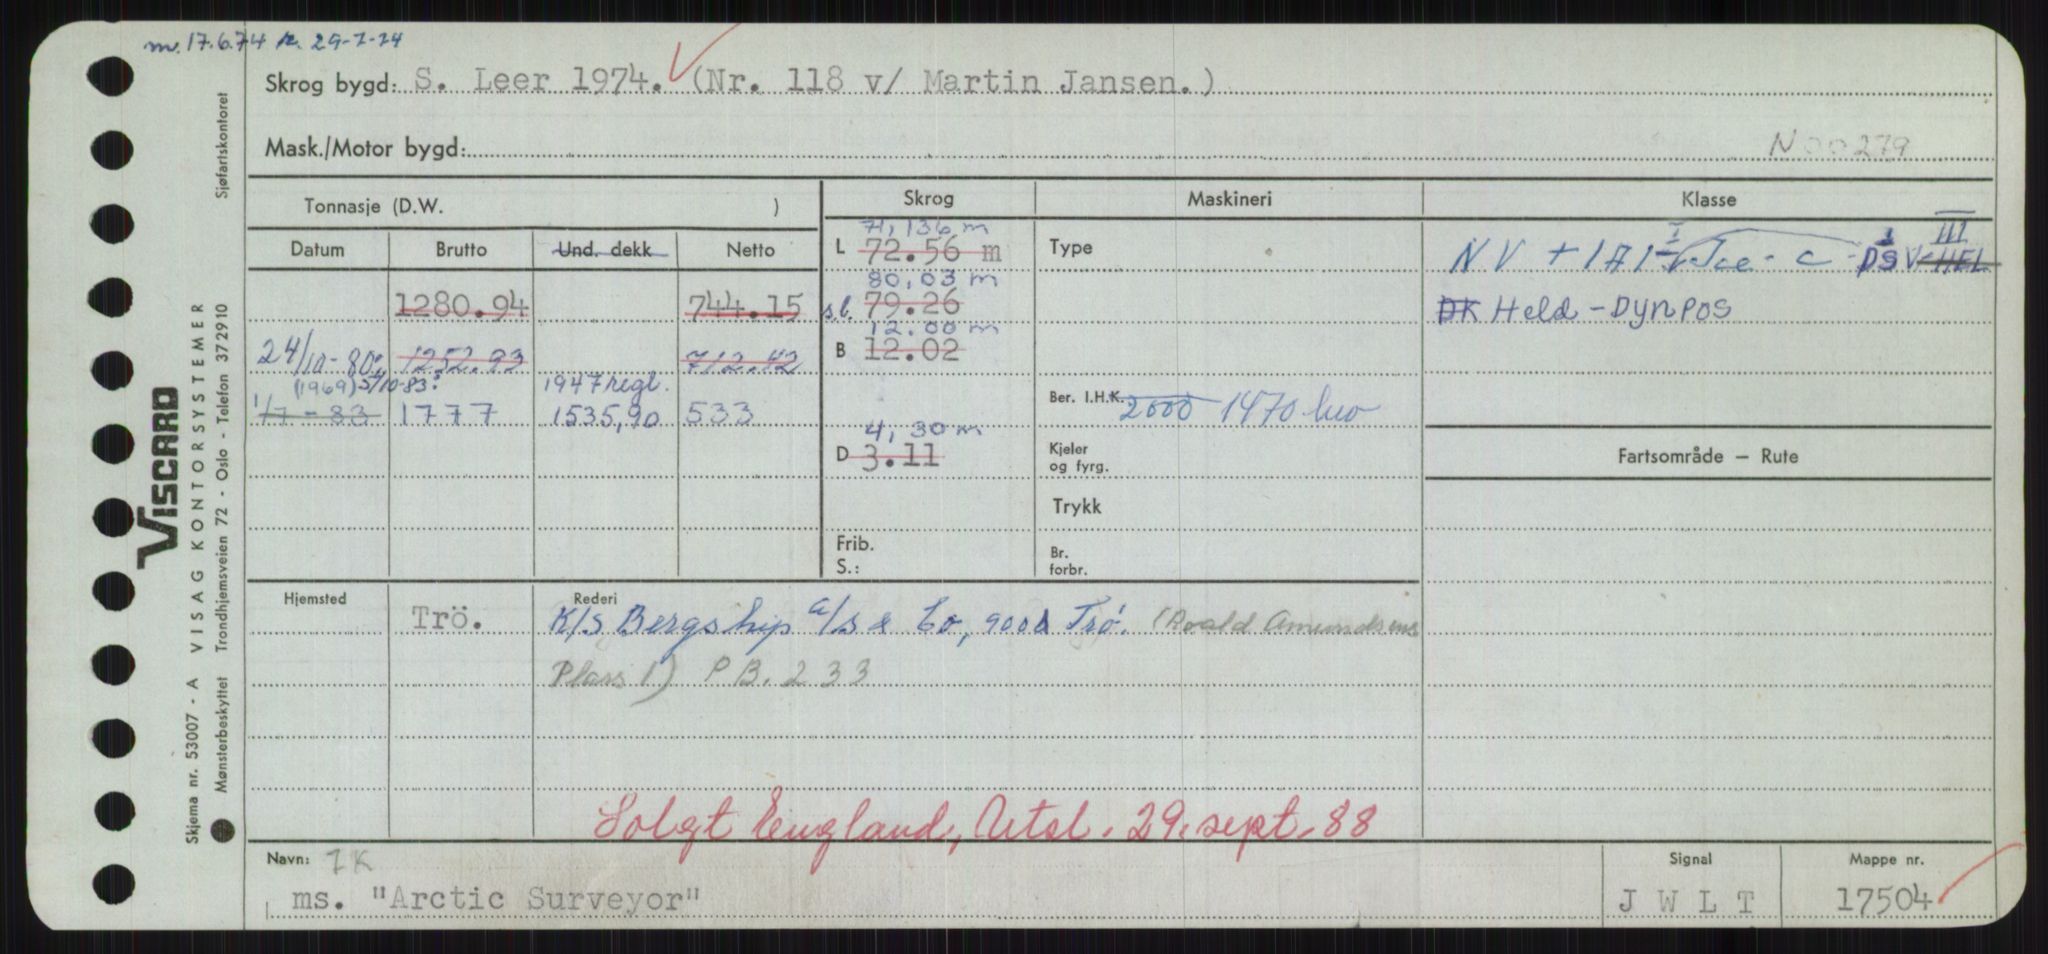 m. 17.6.74 r. 29-7-74
Skrog bygd: S. Leer 1974. (Nr. 118 v/ Martin Jansen.)
Mask./Motor bygd:
N 00279
Tonnasje (D.W. )
Skrog
Maskineri
Klasse
Datum Brutto Und. dekk Netto
1280.94 744.15
24/10-80: 1252.93 712.42
(1969) 5/10-83: 1947 regl.
1/7-83 1777 1535,90 533
71,136 m
L 72.56 m
80,03 m
s.l. 79.26
12.00 m
B 12.02
4,30 m
D 3.11
Frib.
S.:
Type
Ber. I.H.K. 2000 1470
Kjeler
og fyrg.
Trykk
Br.
forbr.
I III
NV + 1A1 Ice - C - DSV-HEL
DK Held - DYNPOS
Fartsområde — Rute
Hjemsted Rederi
Trö. K/S Bergship a/s & Co, 9001 Trö. (Roald Amundsens
Plass 1) P B. 233
Solgt England, Utsl. 29. sept. 88
Navn: 7K
ms. "Arctic Surveyor"
Signal
J W L T
Mappe nr.
17504
VISCARD
Skjema nr. 53007 - A VISAG KONTORSYSTEMER
Mønsterbeskyttet Trondhjemsveien 72 - Oslo - Telefon 372910 Sjøfartskontoret